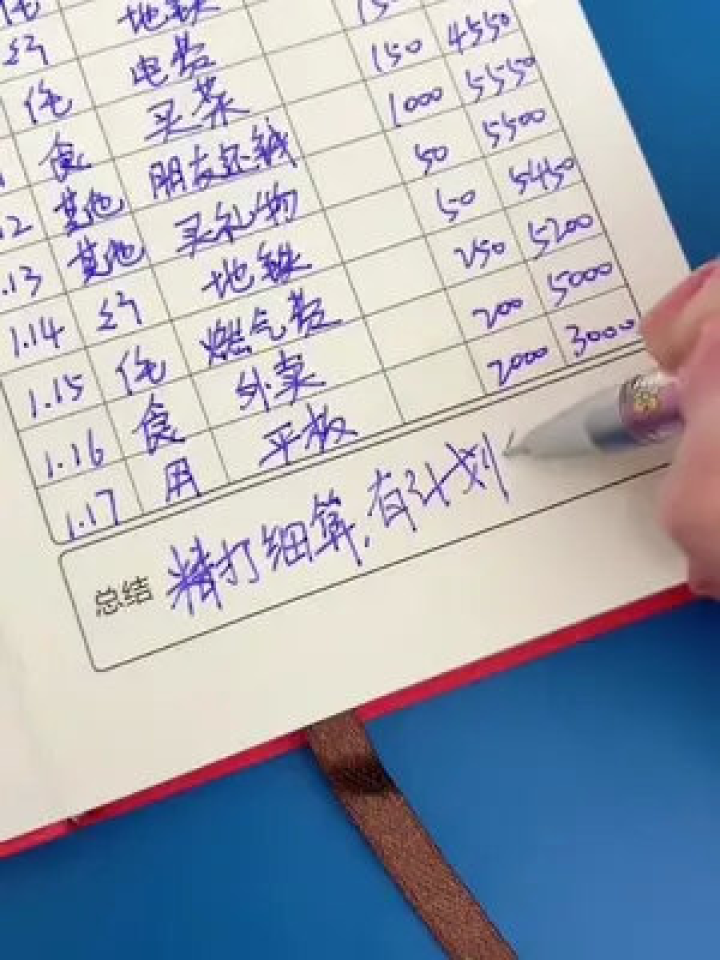 地铁
行 电费 150 4550
住 买菜 1000 5550
食 朋友还钱 50 5500
.12 其他 买礼物 50 5450
.13 其他 地铁 250 5200
1.14 行 燃气费 200 5000
1.15 住 外卖 2000 3000
1.16 食 平板
1.17 用
总结 精打细算，有计划